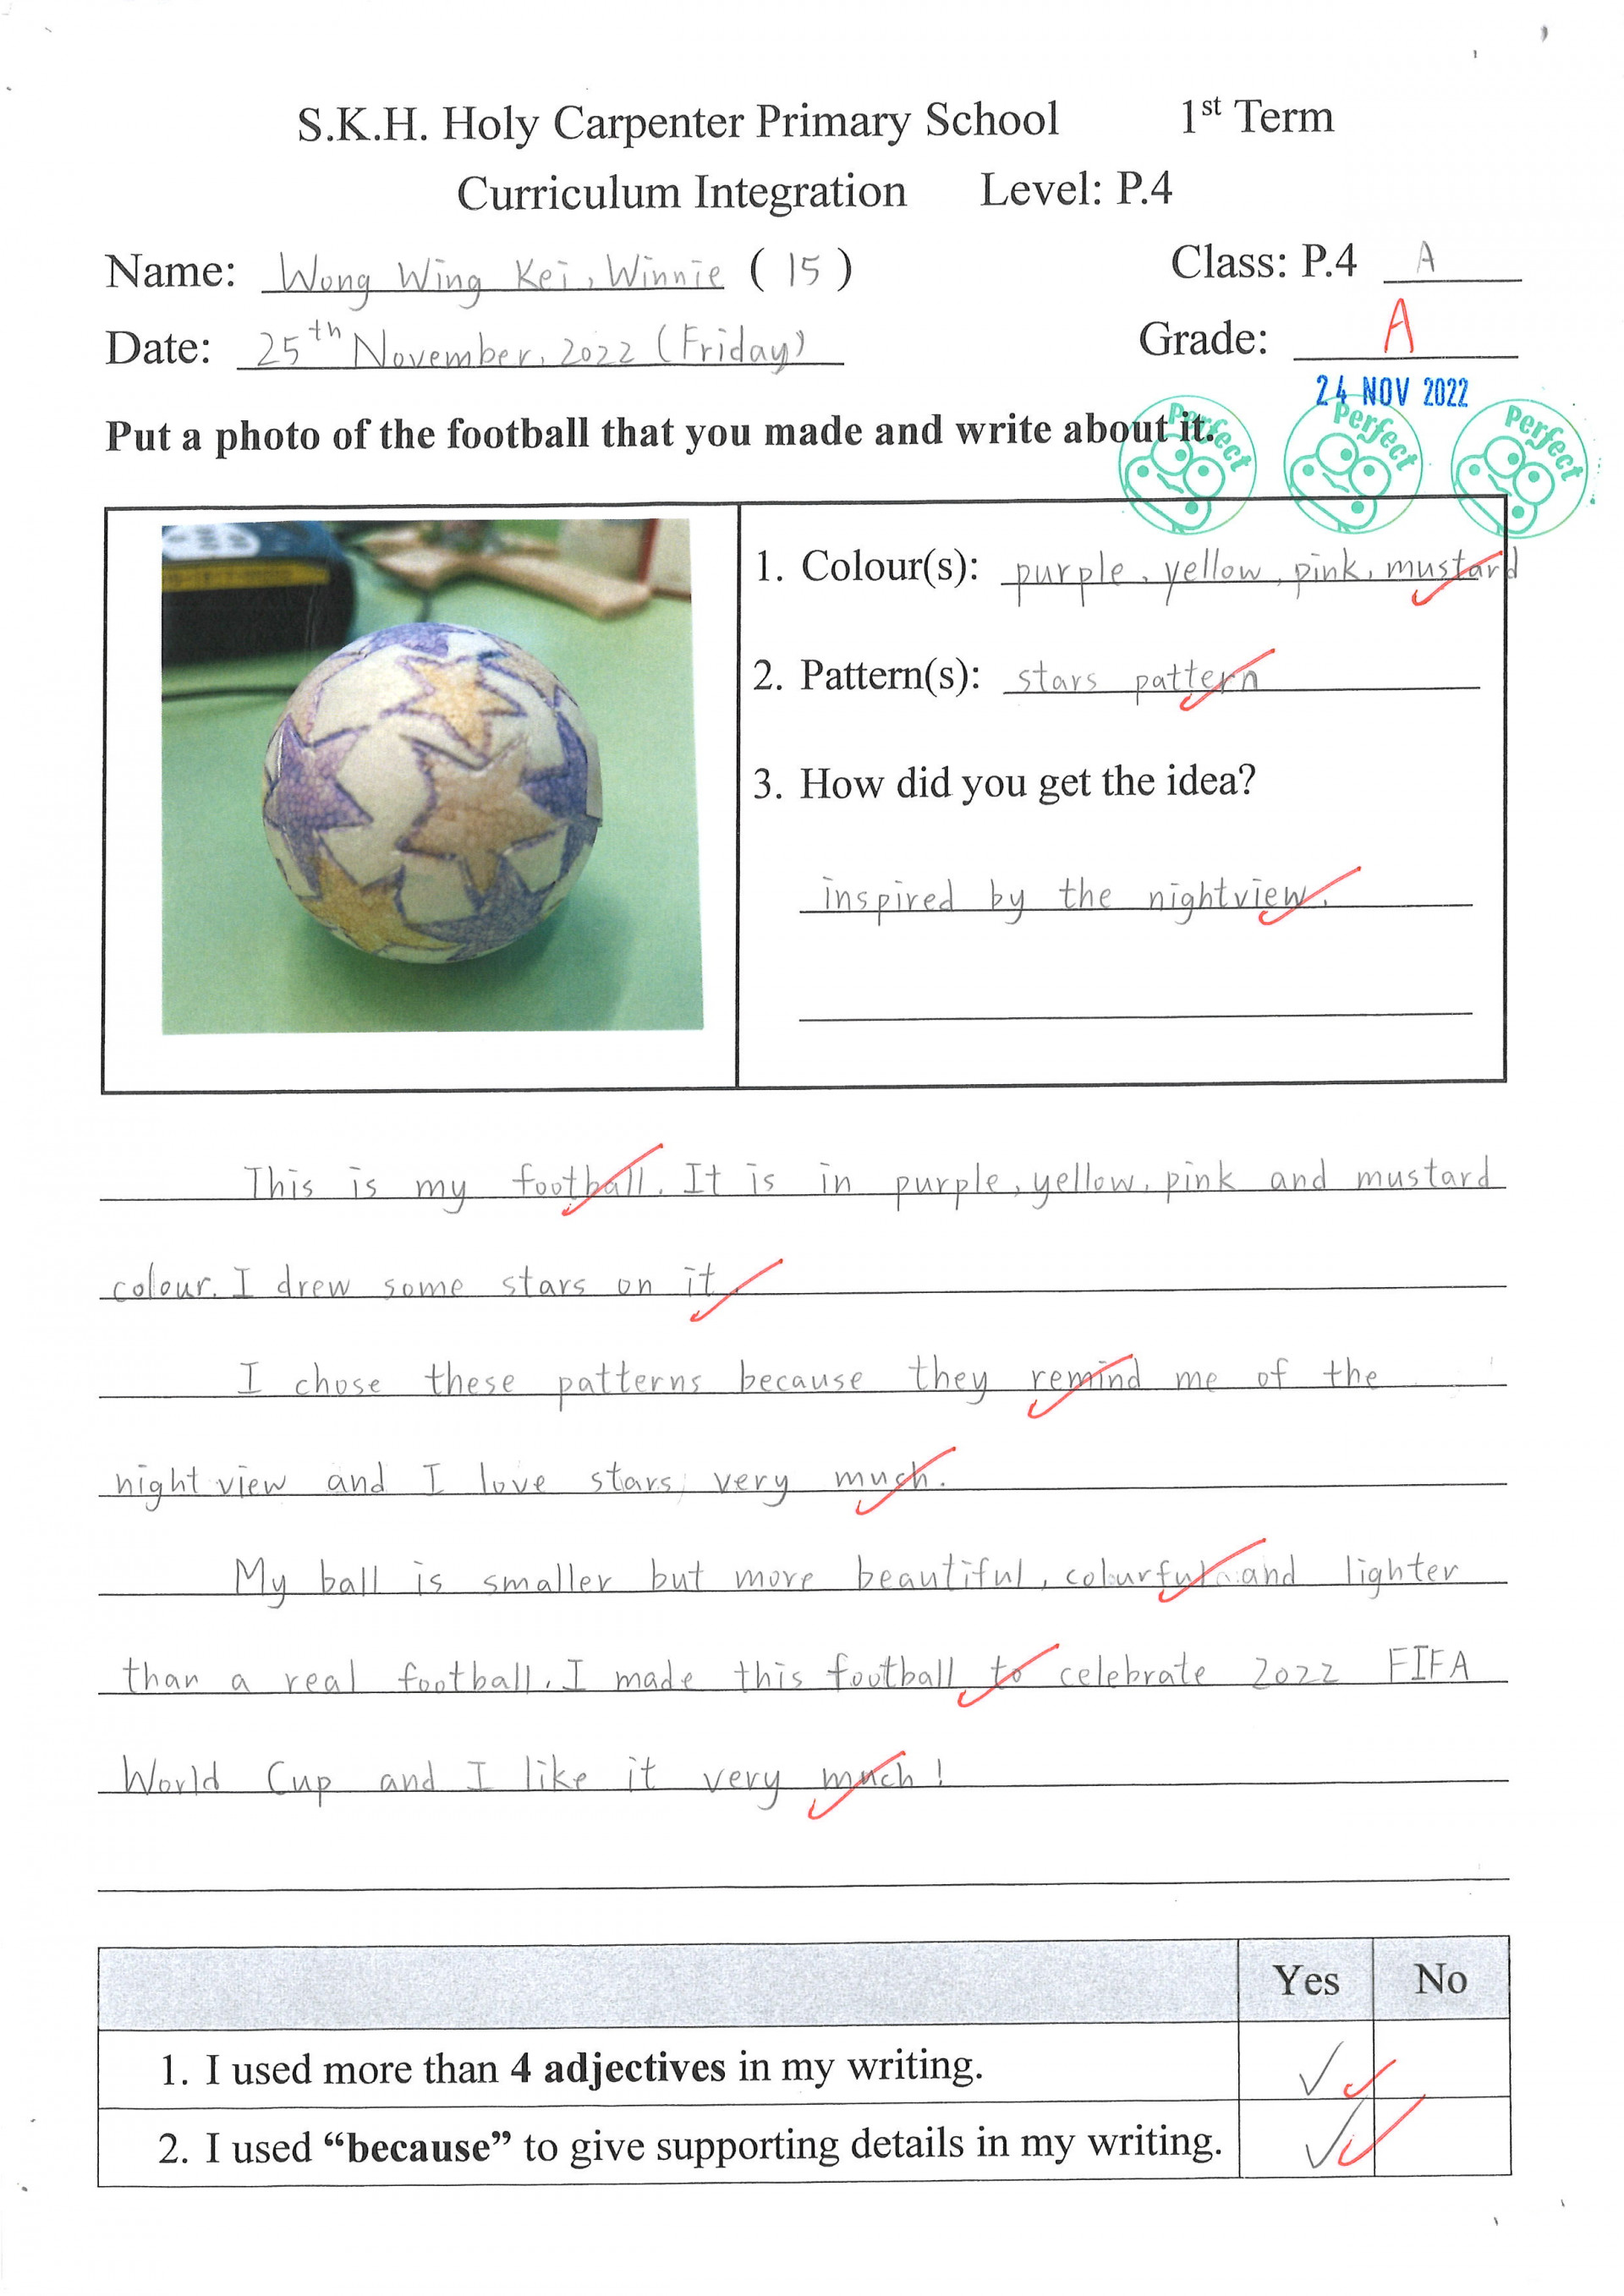 S.K.H. Holy Carpenter Primary School 1st Term
Curriculum Integration Level: P.4
Name: Wong Wing Kei, Winnie ( 15 ) Class: P.4 A
Date: 25th November, 2022 (Friday) Grade: A
24 NOV 2022
Put a photo of the football that you made and write about it.
Perfect Perfect Perfect
1. Colour(s): purple, yellow, pink, mustard
2. Pattern(s): stars pattern
3. How did you get the idea?
inspired by the nightview.
This is my football. It is in purple, yellow, pink and mustard
colour. I drew some stars on it
I chose these patterns because they remind me of the
night view and I love stars very much.
My ball is smaller but more beautiful, colourful and lighter
than a real football. I made this football to celebrate 2022 FIFA
World Cup and I like it very much!
Yes No
1. I used more than 4 adjectives in my writing.
2. I used “because” to give supporting details in my writing.